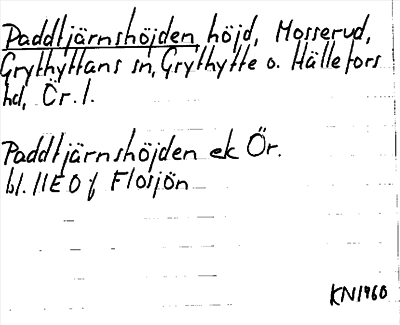 Paddtjärnshöjden höjd, Mosserud,
Grythyttans sn, Grythytte o. Hällefors
hd, Ör. l.
Paddtjärnshöjden ek Ör.
bl. 11E 0f Flosjön
KN1960